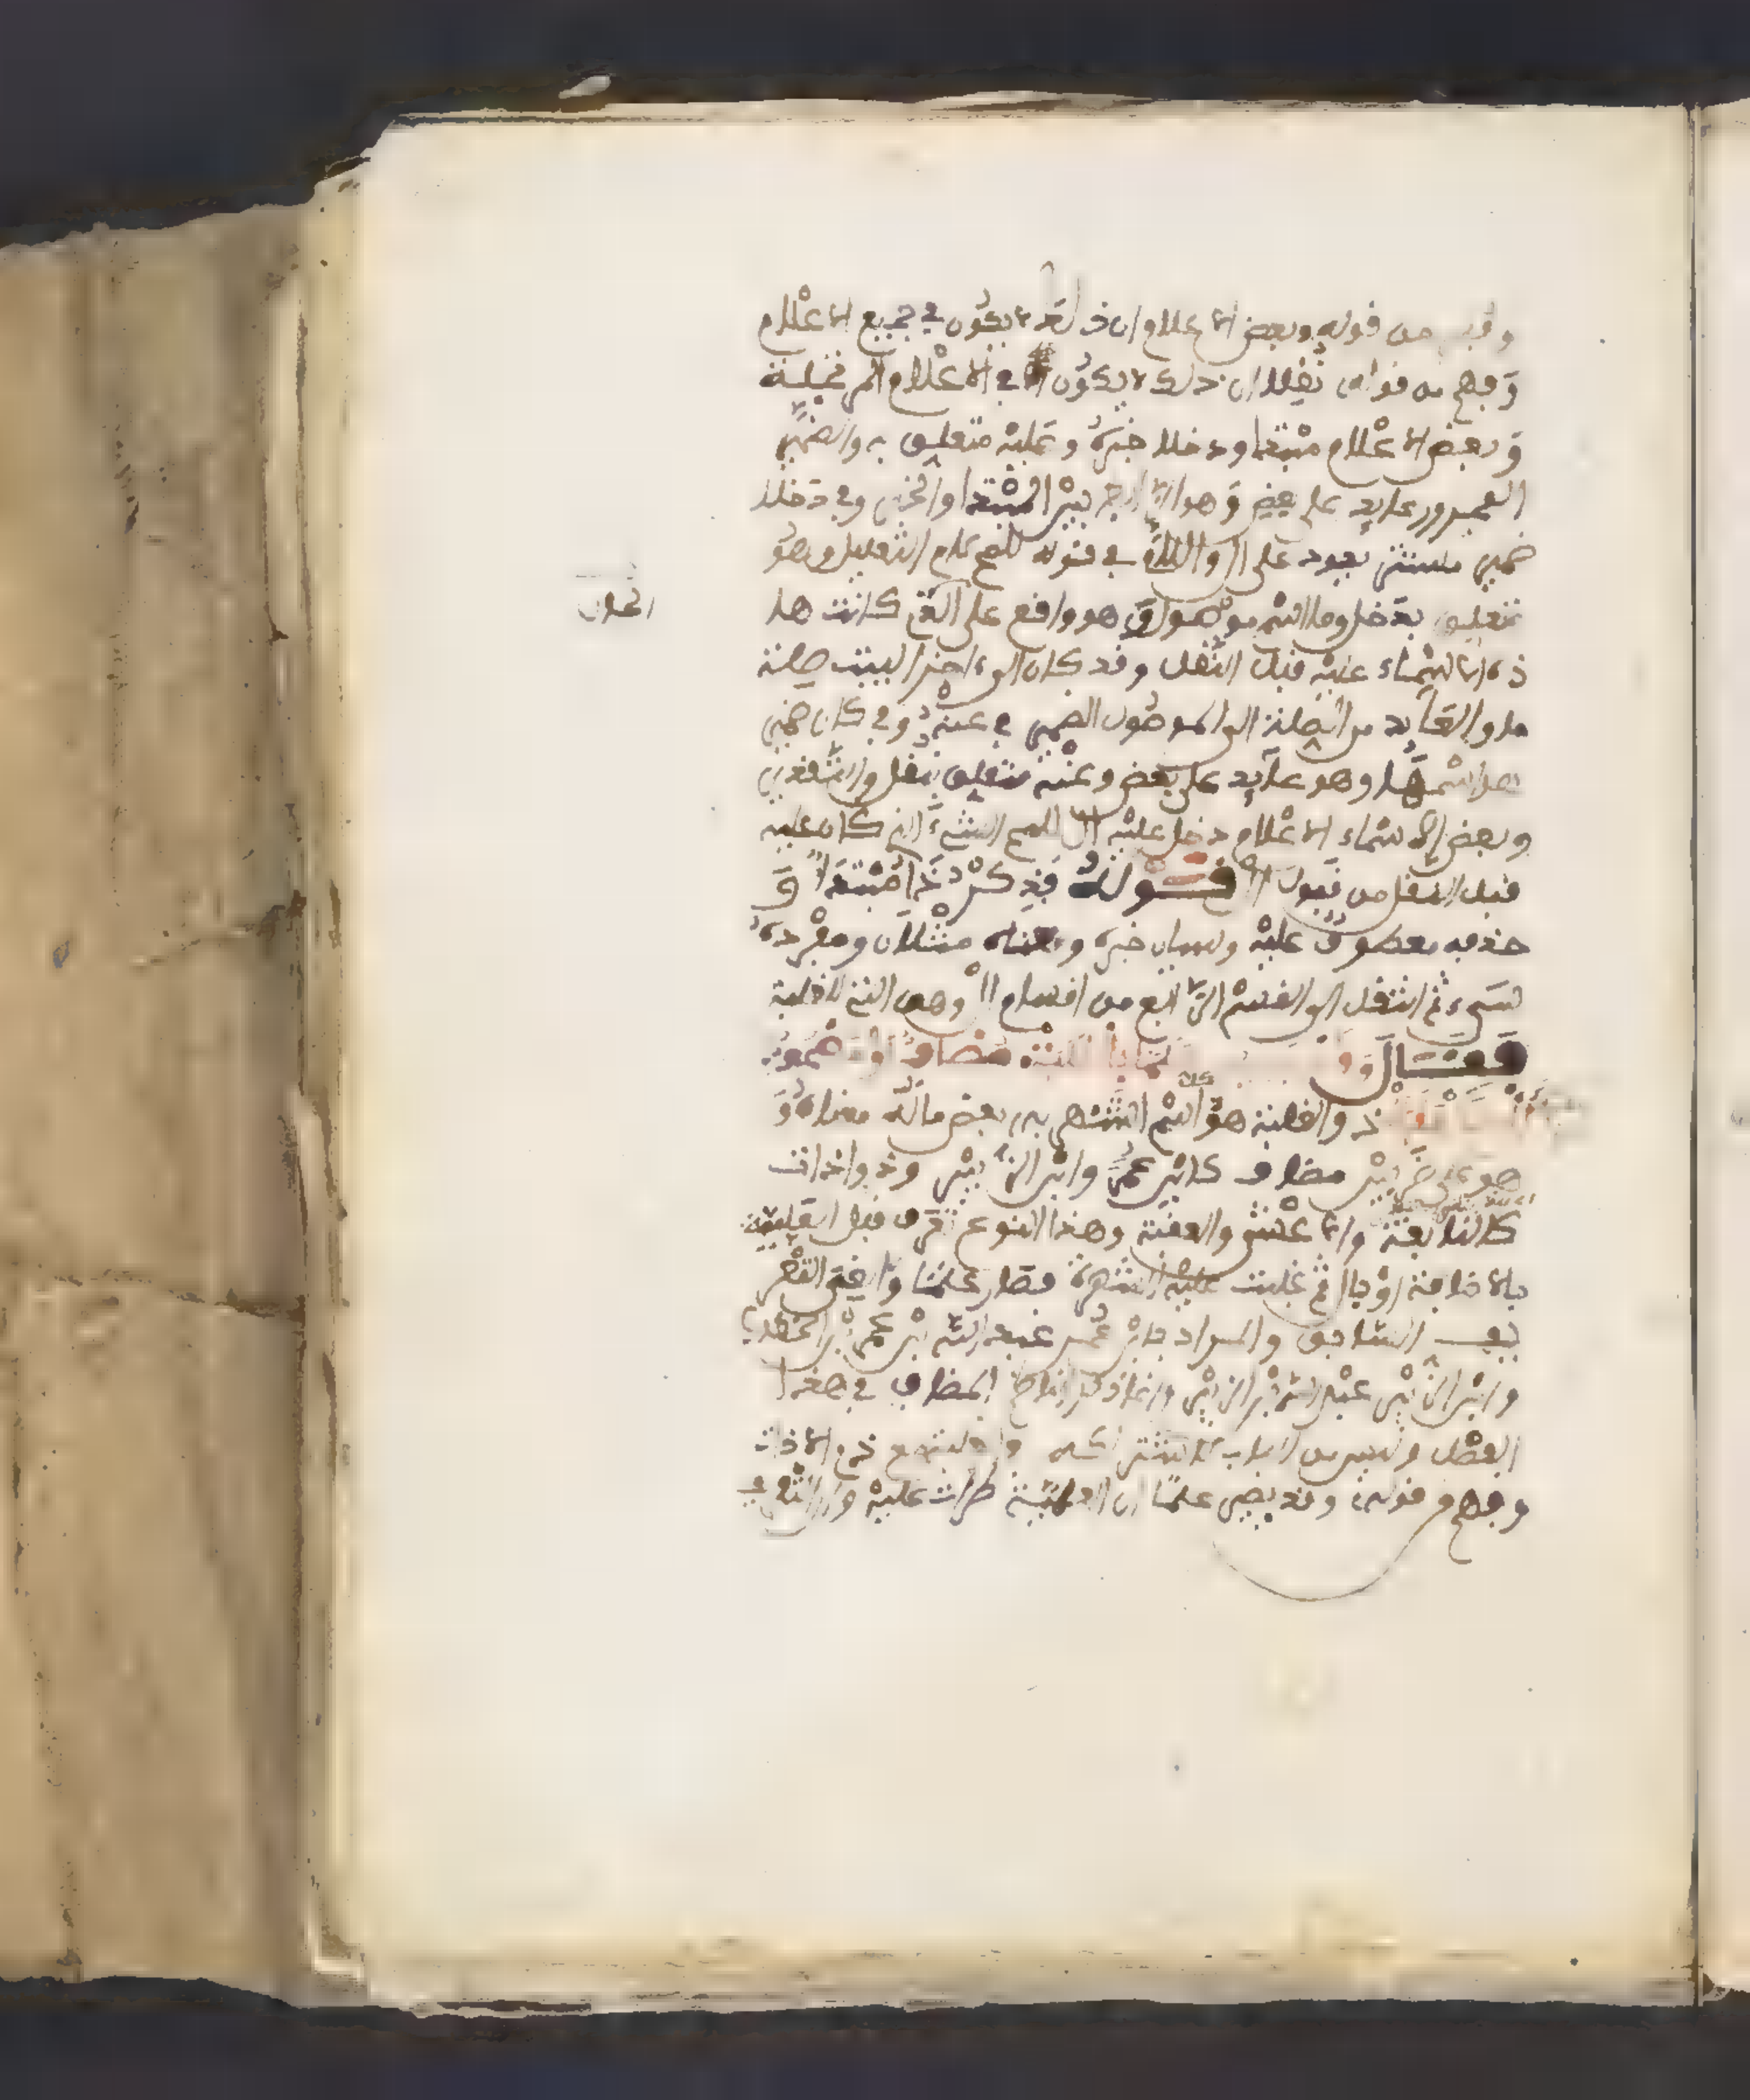 وفهم من قوله وبعض الاعلام ان ذلك لا يكون في جميع الاعلام
وفهم من قوله نقلا ان ذلك لا يكون في الاعلام المرتجلة
وبعض الاعلام مبتدا ودخلا خبره وعليه متعلق به والضمير
المجرور عايد على بعض وهو الرابط بين المبتدا والخبر وفي دخلا
ضمير مستتر يعود على ال واللام في قوله للمح لام التعليل وهو
متعلق بدخل وما اسم موصول وهو واقع على التي كانت هذ
ذه الاسماء عليه قبل النقل وقد كان الى اخر البيت صلة
ما والعايد من الصلة الى الموصول الضمير في عنه وفي كان ضمير
هو اسمها وهو عايد على بعض وعنه متعلق بنقل والتقدير
وبعض الاسماء الاعلام دخل عليه ال للمح الشيء الذي كان عليه
قبل النقل من قبول ال قوله فذكر ذا مبتدا و
حذفه معطوف عليه وسيان خبره ومعناه مثلان ومفرده
سي ثم انتقل الى القسم الرابع من اقسام ال وهي التي للغلبة
فقال وقد يصير علما بالغلبة مضاف او مصحوب
ال كالعقبة ذو الغلبة هو كل اسم اشتهر به بعض ما له معناه و
هو على ضربين مضاف كابن عمر وابن الزبير وذو اداة
كالنابغة والاعشى والعقبة وهذا النوع تعرف قبل الغلبة
بالاضافة او بال ثم غلبت عليه الشهرة فصار علما والغي التعر
يف السابق والمراد بابن عمر عبد الله بن عمر بن الخطاب
وابن الزبير عبد الله بن الزبير وانما ذكر ايضا المضاف في هذا
الفصل وليس من الباب لاشتراكه مع ذي الاداة
وفهم من قوله وقد يصير علما ان العلمية طرات عليه وان التعر